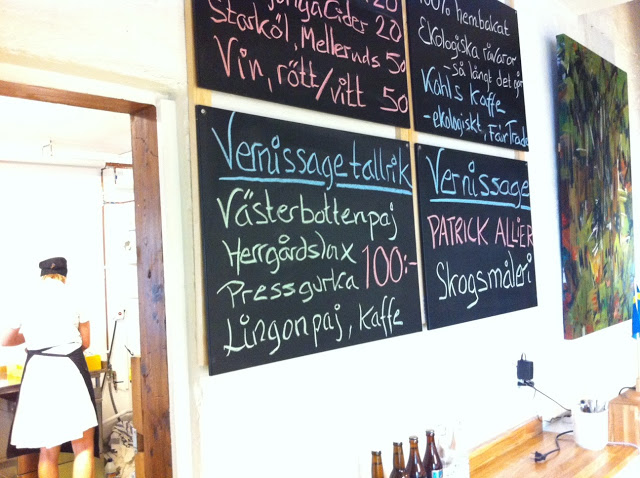 Cider 20
Starköl, Melleruds 50
Vin, rött/vitt 50
100% hembakat
Ekologiska råvaror
-så långt det går
Kahls Kaffe
-ekologiskt, FairTrade
Vernissage tallrik
Västerbottenpaj
Herrgårdslax
Pressgurka 100:-
Lingonpaj, Kaffe
Vernissage
PATRICK ALLIER
Skogsmåleri